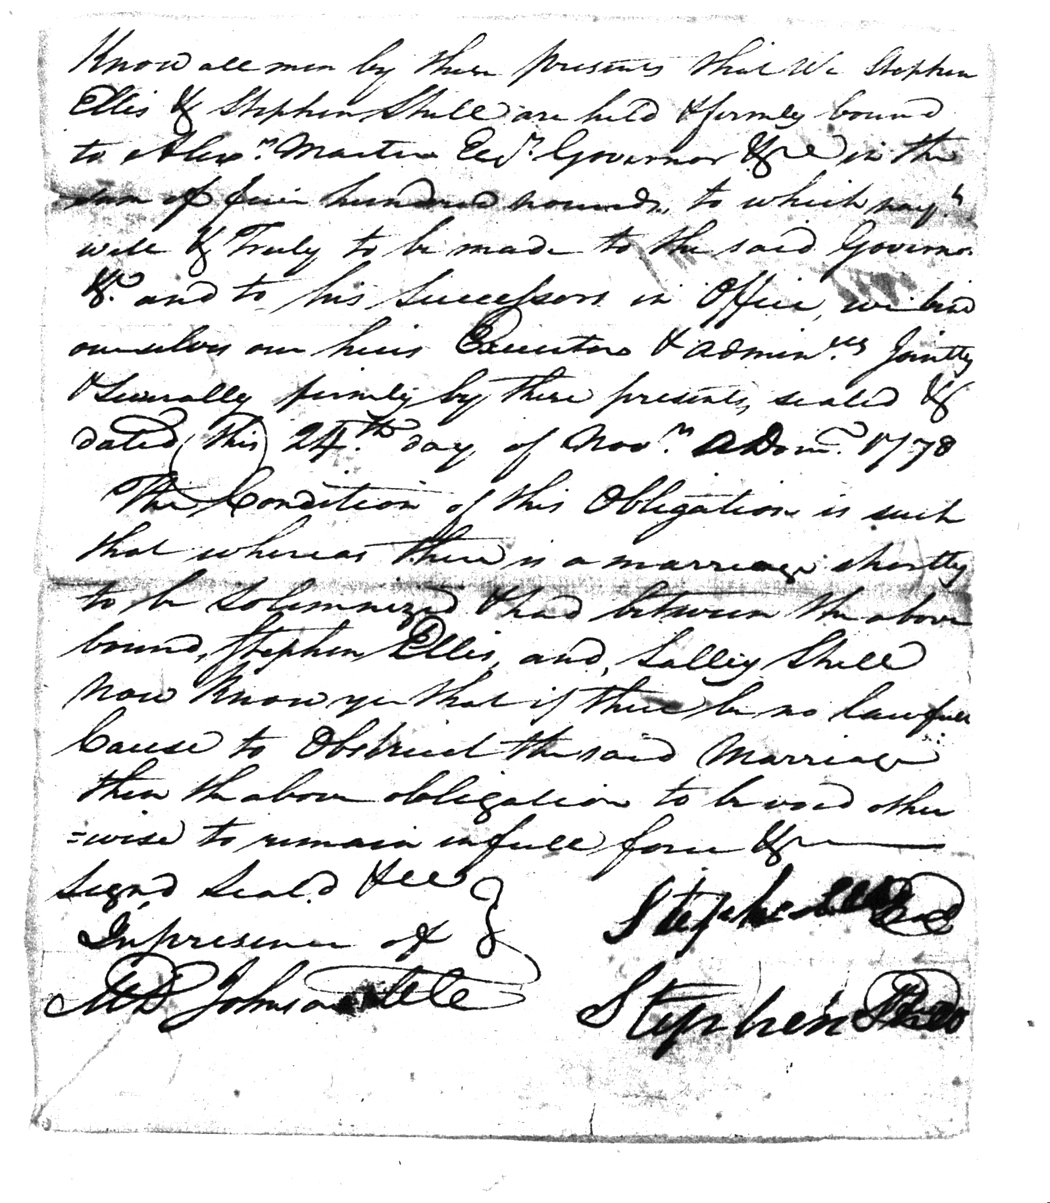 Know all men by these presents that We Stephen
Ellis & Stephen Shell are held & firmly bound
to Alexr. Martin Esqr. Governor &c in the
sum of five hundred pounds, to which paymt.
well & Truly to be made to the said Governor
&c. and to his Successors in Office, we bind
ourselves our heirs Executors & adminrs. Jointly
& Severally firmly by these presents, sealed &
dated this 24th. day of Novr. ADom. 1778
The Condition of this Obligation is such
that whereas there is a marriage shortly
to be Solemnized & had between the above
bound, Stephen Ellis, and, Salley Shell
Now Know ye that if there be no lawfull
Cause to Obstruct the said Marriage
then the above obligation to be void other
=wise to remain in full force &c
Signd Seald &c
In presence of
M D Johnson
Stephen Ellis
Stephen Shell